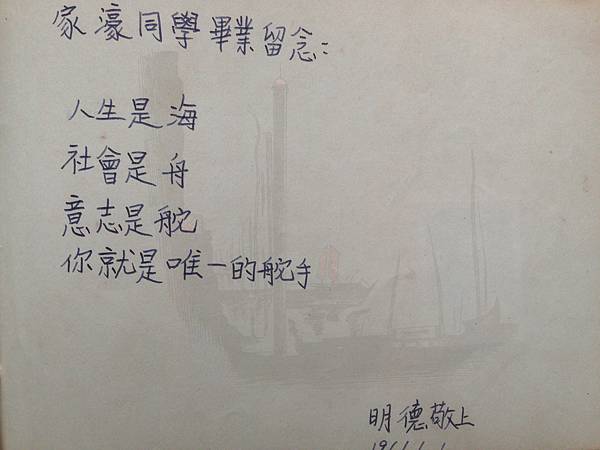 家濠同學畢業留念：
人生是海
社會是舟
意志是舵
你就是唯一的舵手
明德敬上